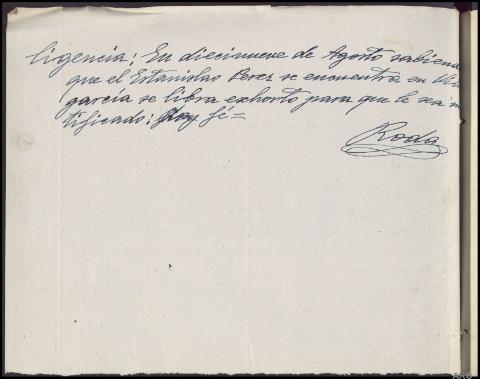 ligencia; En diecinueve de Agosto sabiend
que el Estanislao Perez se encuentra en Vill
garcía se libra exhorto para que le sea n
tificado: Doy fé=
Roda